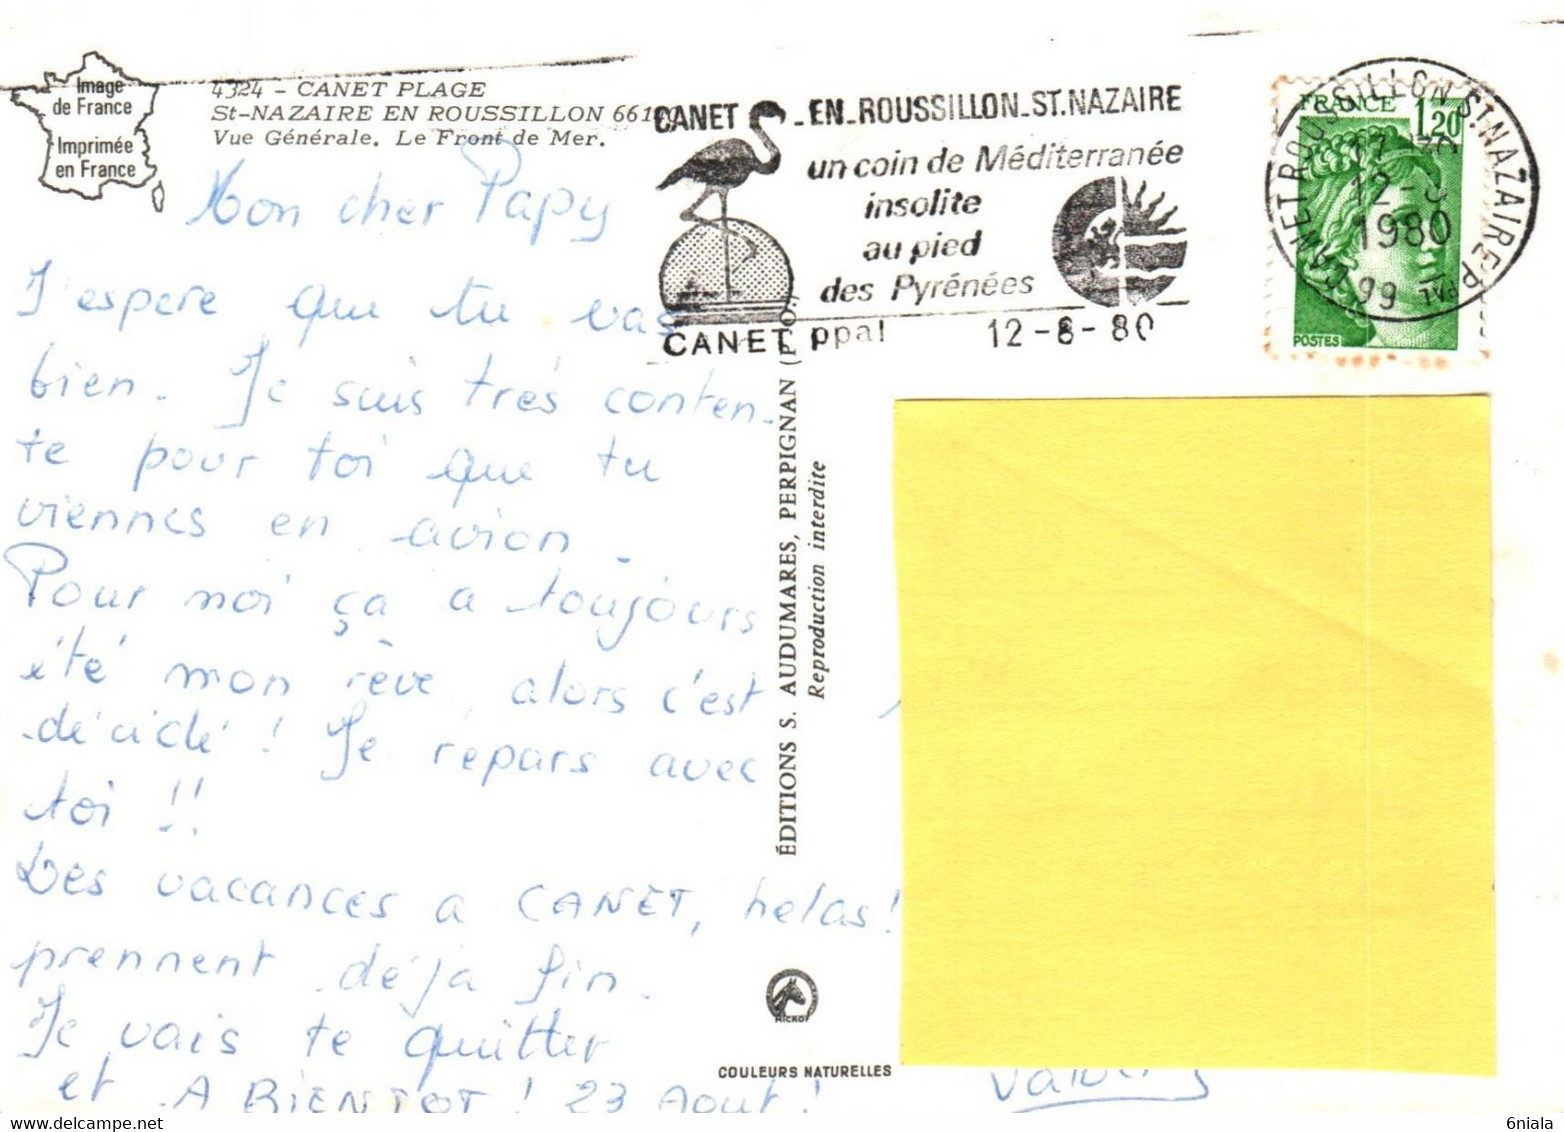 Image
de France
Imprimée
en France
4324 - CANET PLAGE
St-NAZAIRE EN ROUSSILLON 661
Vue Générale. Le Front de Mer.
CANET - EN - ROUSSILLON - ST. NAZAIRE
un coin de Méditerranée
insolite
au pied
des Pyrénées
CANET ppal 12-8-80
FRANCE 1,20
POSTES
CANET ROUSSILLON ST. NAZAIRE P PAL 66
12-8
1980
Mon cher Papy
J'espere que tu vas
bien. Je suis très conten-
te pour toi que tu
viennes en avion.
Pour moi ça a toujours
été mon rêve alors c'est
décidé ! Je repars avec
toi !!
Des vacances a CANET, helas !
prennent déja fin.
Je vais te quitter
et A BIENTOT ! 23 Aout !
ÉDITIONS S. AUDUMARES, PERPIGNAN (P.-O.)
Reproduction interdite
MICRO
COULEURS NATURELLES
6niala